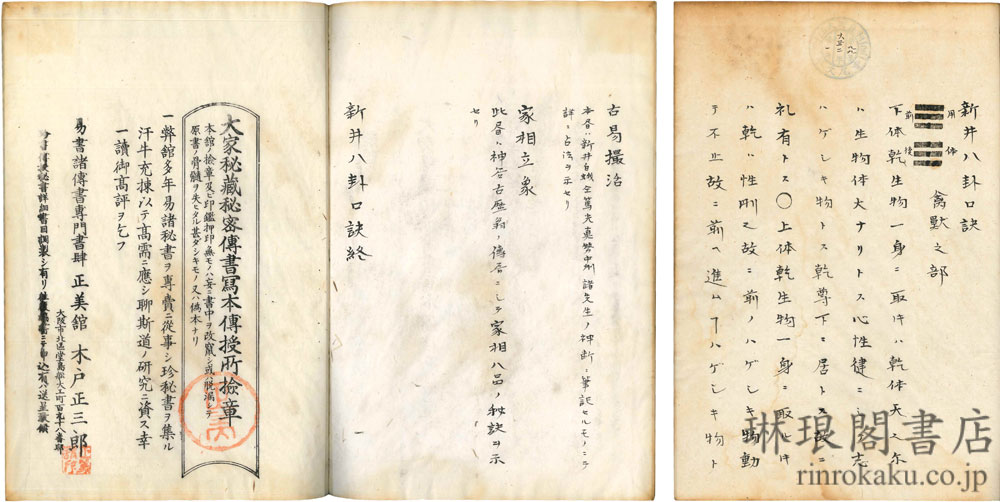 新井八卦口訣
用
禽獸之部
下体乾生物一身ニ取ハ乾体
ハ生物体大ナリトス心性健ニシテ志
ハゲシキ物トス乾尊下ニ居トス故ニ
礼有トス〇上体乾生物一身ニ取
ハ乾ハ性剛故ニ前ノハゲシキ物動
テ不止故ニ前ヘ進ムヿハゲシキ物ト
古易撮
本書ハ新井白蛾真勢中州諸先生ノ神断ヲ筆記セルモノニシテ
詳ニ占法ヲ示セリ
家相立象
此書ハ神谷古暦翁ノ傳書ニシテ家相八品ノ秘訣ヲ示
セリ
新井八卦口訣終
大家秘藏秘密傳書寫本傳授所撿章
本舘ノ撿章及ビ印鑑押印無モノハ妄ニ書中ヲ改竄シ或ハ脱漏シテ
原書ノ骨髓ヲ失ヒタル甚ダシキモノ又ハ僞本ナリ
一弊舘多年易諸秘書ヲ專賣ニ從事シ珍秘書ヲ集ル
汗牛充棟以テ高需ニ應シ聊斯道ノ研究ニ資ス幸
一讀御高評ヲ乞フ
大阪市北區堂島船大工町百五十八番邸
易書諸傳書專門書肆 正美舘 木戸正三郎
秘書詳細書目調製シ有リ
琳琅閣書店
rinrokaku.co.jp